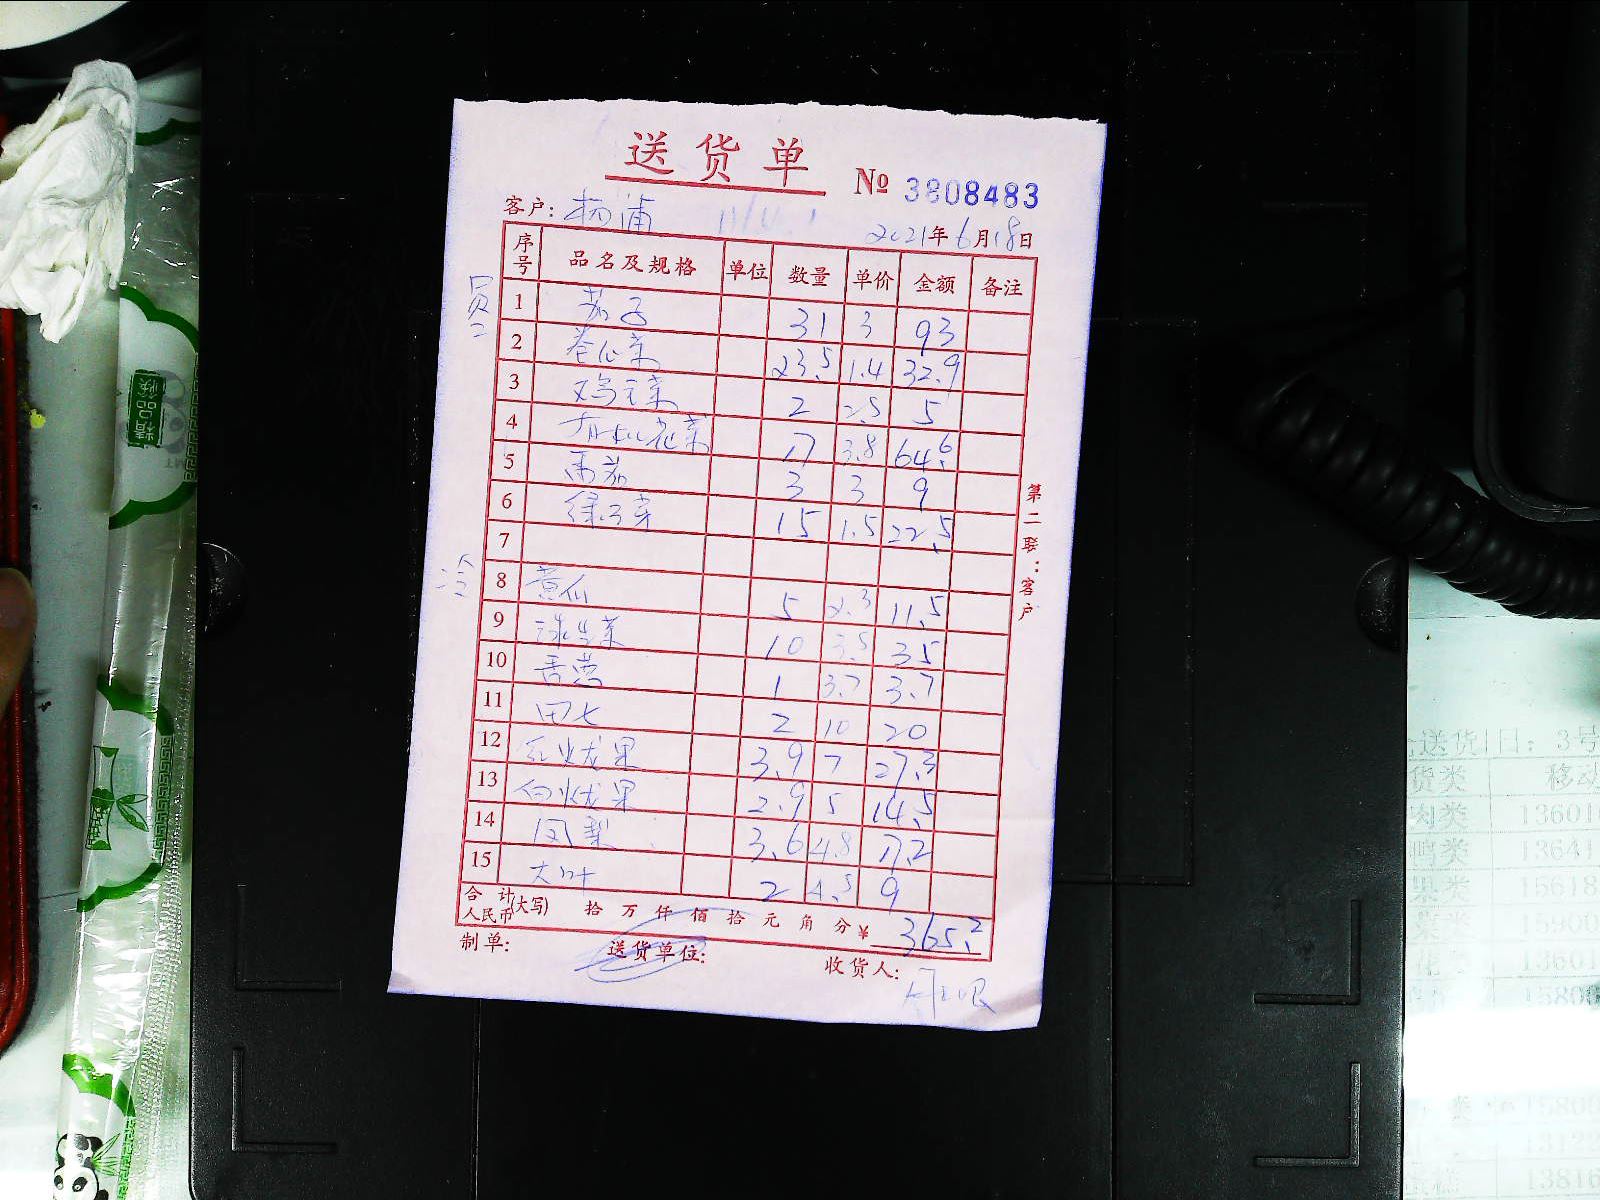 送货单 № 3808483
客户: 杨浦 2021年6月18日
序号 品名及规格 单位 数量 单价 金额 备注
员工
1 茄子 31 3 93
2 卷心菜 23.5 1.4 32.9
3 鸡毛菜 2 2.5 5
4 有机花菜 17 3.8 64.6
5 番茄 3 3 9
6 绿豆芽 15 1.5 22.5
7
冷
8 黄瓜 5 2.3 11.5
9 球生菜 10 3.5 35
10 3.7 3.7
11 田七 2 10 20
12 红火龙果 3.9 7 27.3
13 白火龙果 2.9 5 14.5
14 凤梨 3.6 4.8 17.2
15 大叶 2 4.5 9
合计人民币(大写) 拾 万 仟 佰 拾 元 角 分 ¥ 365.2
制单: 送货单位: 收货人:
第二联:客户
精品馆
送货 日: 3号
货类 移动
肉类 1360
鸭类 13641
果类 15618
菜类 15900
花 1360
15800
类 15800
13122
蛋糕 13816